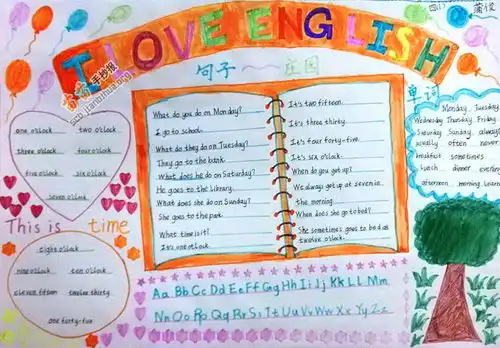 四(1)
I LOVE ENGLISH
手抄报
句子
庄园
单词
one o'clock
two o'clock
three o'clock
four o'clock
five o'clock
six o'clock
seven o'clock
This is time
eight o'clock
nine o'clock
ten o'clock
eleven fifteen
twelve thirty
one forty-five
What do you do on Monday?
I go to school.
What do they do on Tuesday?
They go to the bank.
What does he do on Saturday?
He goes to the library.
What does she do on Sunday?
She goes to the park.
What time is it?
It's one o'clock.
It's two fifteen.
It's three thirty.
It's four forty-five.
It's six o'clock.
When do you get up?
We always get up at seven in
the morning.
When does she go to bed?
She sometimes goes to bed at
twelve o'clock.
Monday, Tuesday,
Wednesday Thursday, Friday,
Saturday Sunday, always
usually often never
breakfast sometimes
lunch dinner evening
afternoon morning
Aa Bb Cc Dd Ee Ff Gg Hh Ii Jj Kk Ll Mm
Nn Oo Pp Qq Rr Ss Tt Uu Vv Ww Xx Yy Zz